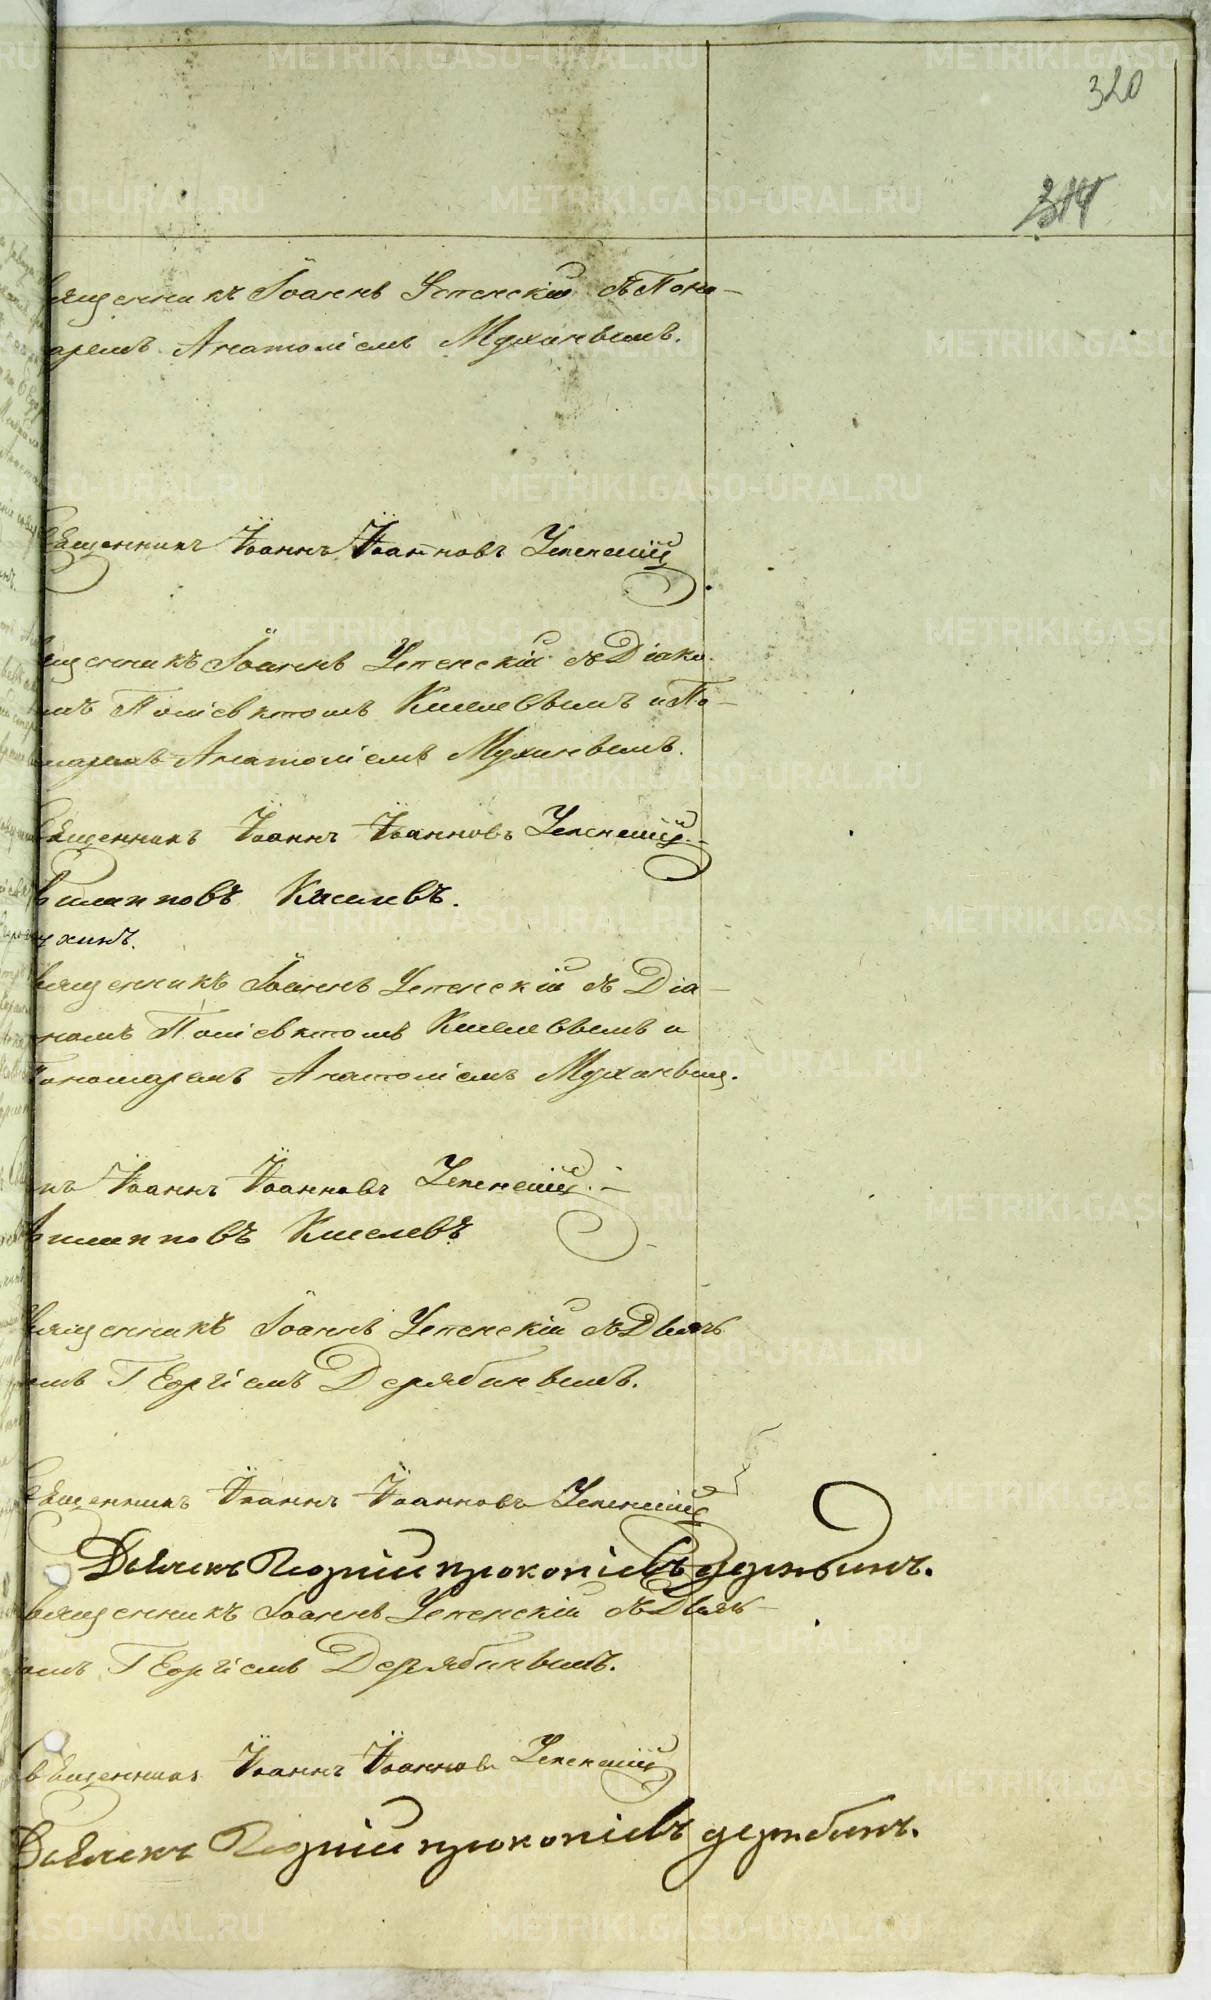 320
314
вященникъ Іоаннъ Успенскій съ Поно-
аремъ Анатоліемъ Мухинымъ.
Священникъ Іоаннъ Іоанновъ Успенскій
ященникъ Іоаннъ Успенскій съ Діако-
мъ Поліевктомъ Киселевымъ и По-
номаремъ Анатоліемъ Мухинымъ.
Священникъ Іоаннъ Іоанновъ Успенскій.
Филипповъ Киселевъ.
ухинъ.
вященникъ Іоаннъ Успенскій съ Діа-
кономъ Поліевктомъ Киселевымъ и
Пономаремъ Анатоліемъ Мухинымъ.
къ Іоаннъ Іоанновъ Успенскій.
Филипповъ Киселевъ
вященникъ Іоаннъ Успенскій съ Дьяч-
омъ Георгіемъ Дерябинымъ.
Священникъ Іоаннъ Іоанновъ Успенскій
Дьячекъ Георгій Прокопіевъ Дерябинъ.
вященникъ Іоаннъ Успенскій съ Дьяч-
омъ Георгіемъ Дерябинымъ.
Священникъ Іоаннъ Іоанновъ Успенскій
Дьячекъ Георгій Прокопіевъ Дерябинъ.